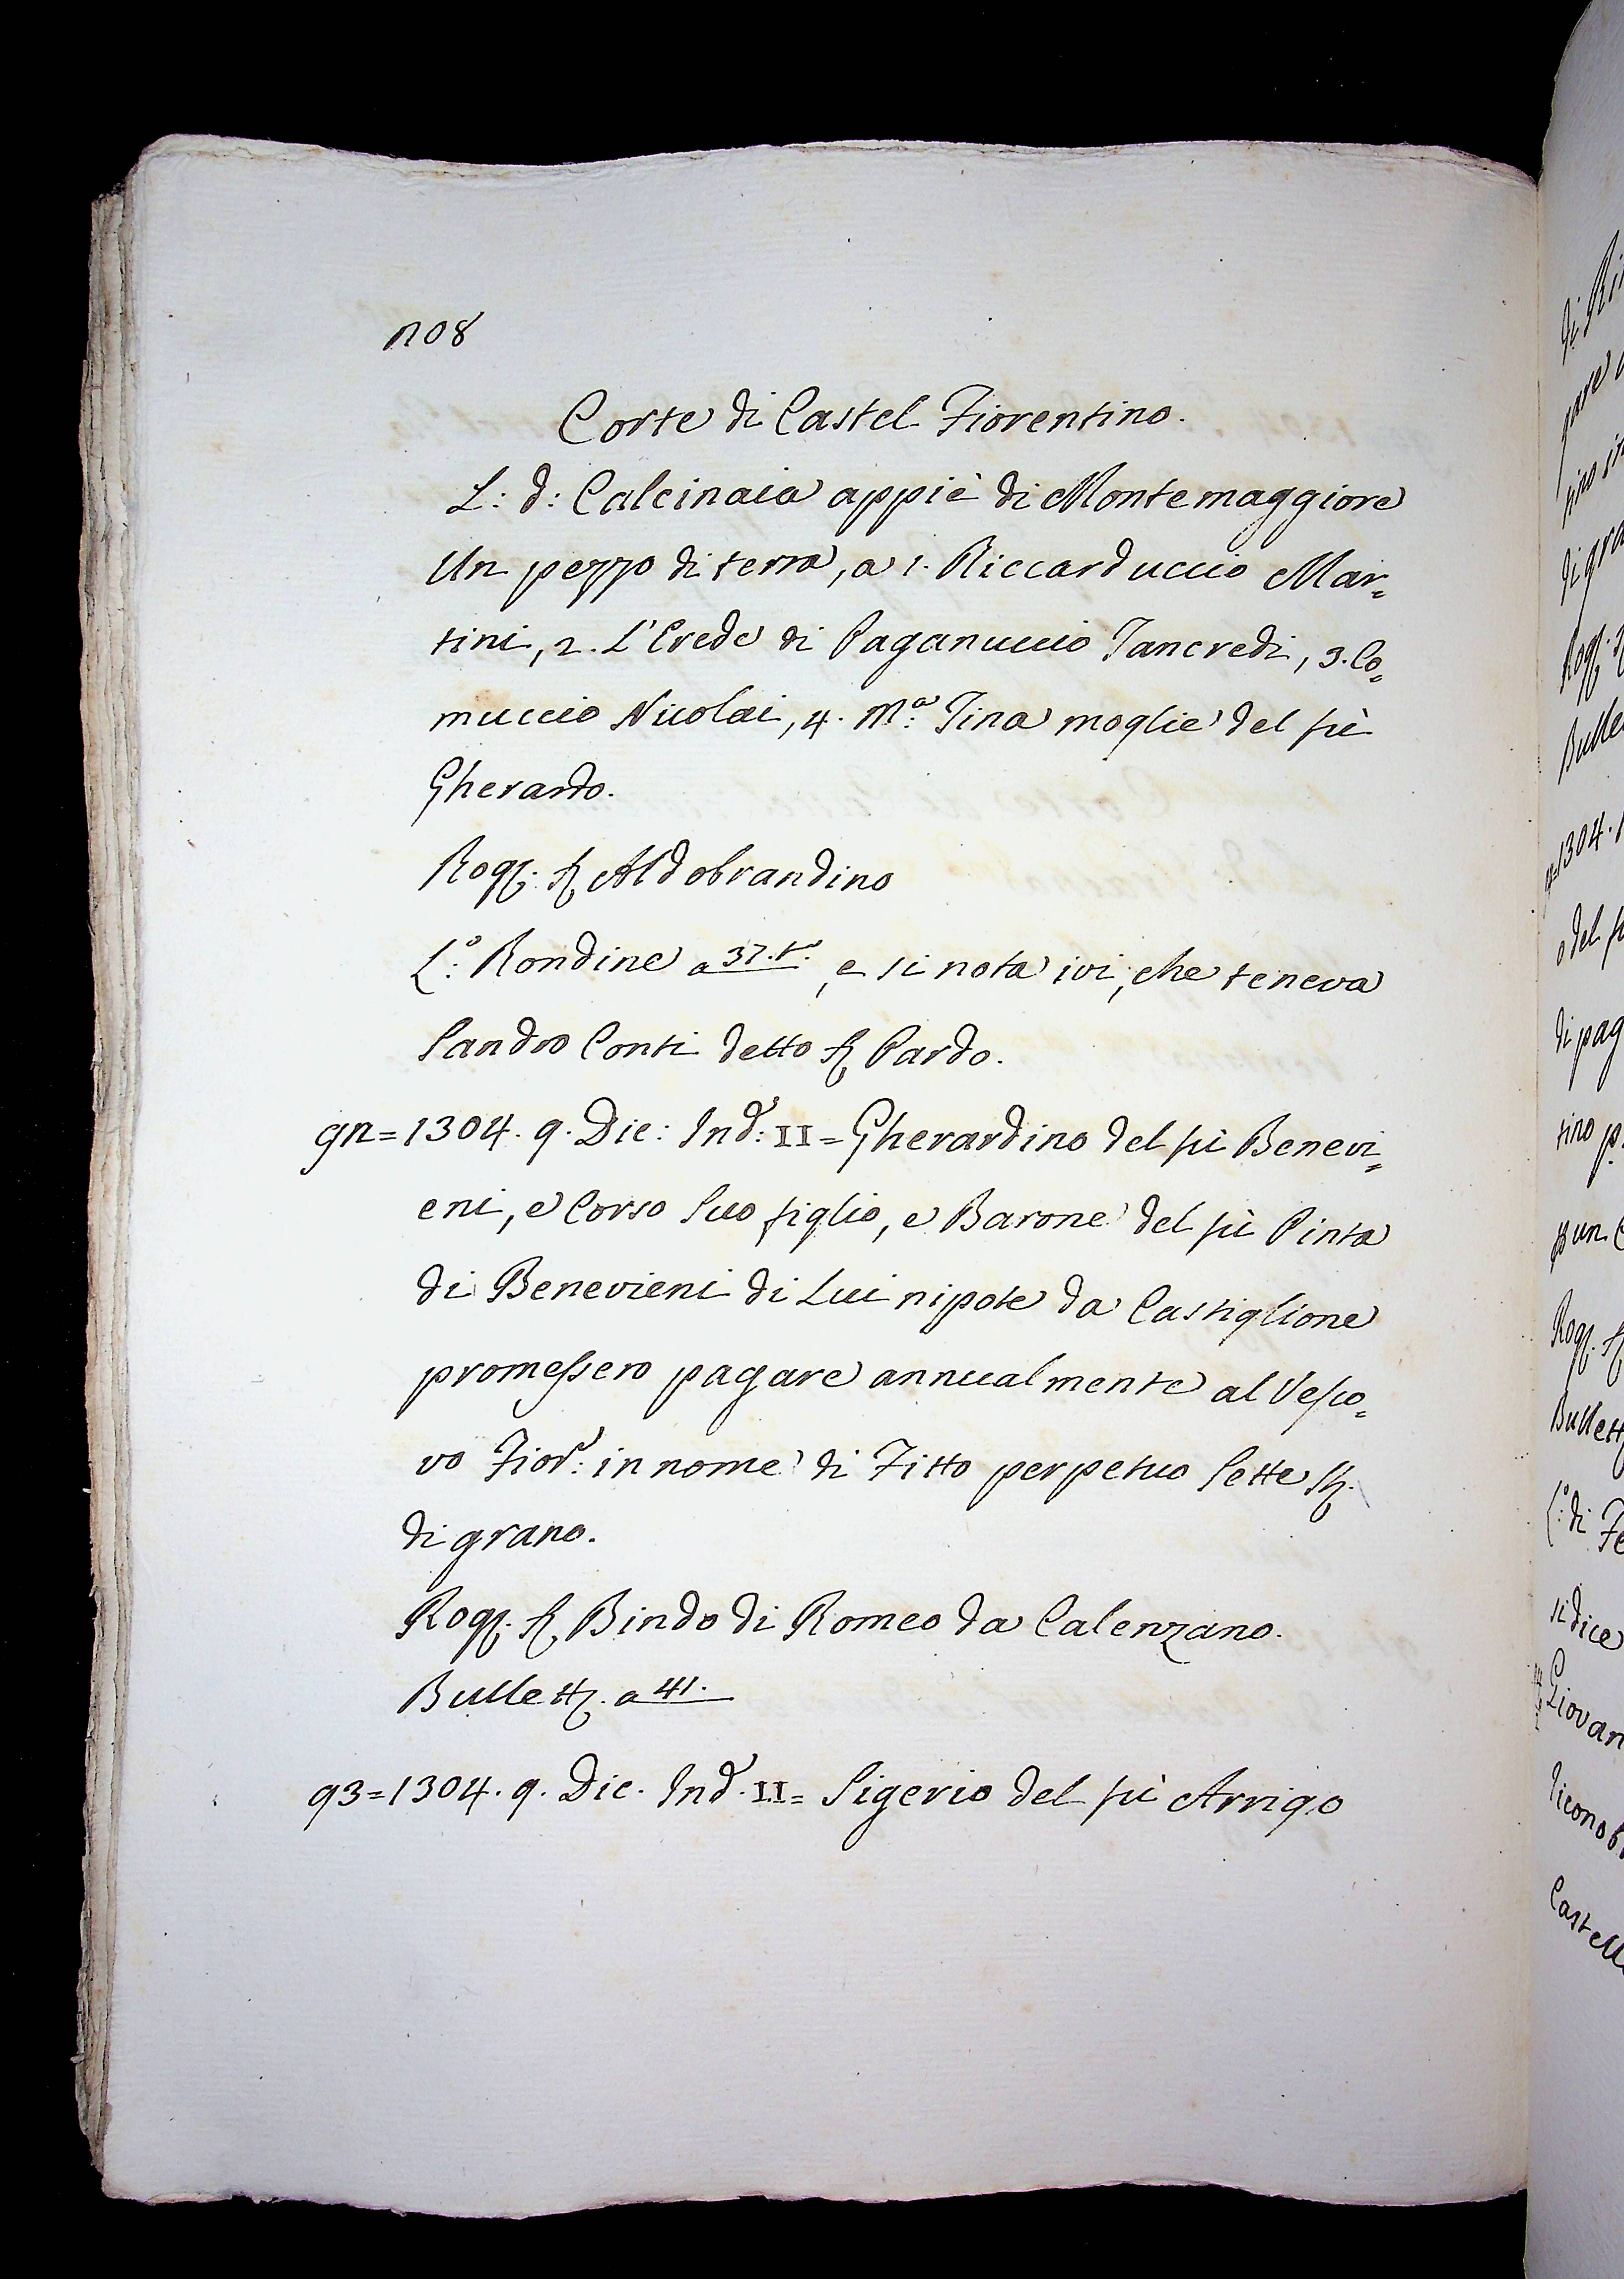 208
Corte di Castel Fiorentino.
L: d: Calcinaia appiè di Montemaggiore
Un pezzo di terra, a 1. Riccarduccio Mar=
tini, 2. L'Erede di Paganuccio Tancredi, 3. Co=
muccio Nicolai, 4. M.a Tina moglie del fù
Gherardo.
Rog. Ser Aldobrandino
L.o Rondine a 37. t.o, e si nota ivi, che teneva
Sandro Conti detto Ser Pardo.
92=1304. 9. Dic: Ind: II=Gherardino del fù Benevi=
eni, e Corso Suo figlio, e Barone del fù Pinta
di Benevieni di Lui nipote da Castiglione
promessero pagare annualmente al Vesco=
vo Fior: in nome di Fitto perpetuo Sette St.
di grano.
Rog. Ser Bindo di Romeo da Calenzano.
Bullett. a 41.
93=1304. 9. Dic. Ind. II= Sigerio del fù Arrigo
1304.
o del
di pag
tino
un
Rog.
Bullett
di Fe
si dice
Giovan
Castell